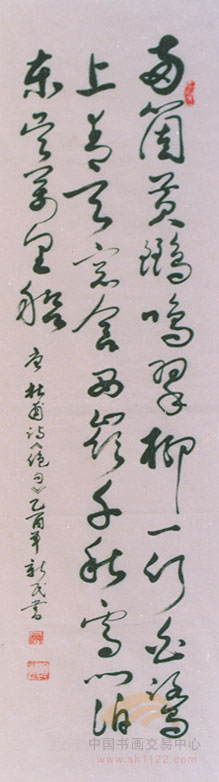 两箇黄鹂鸣翠柳一行白鹭
上青天窗含西岭千秋雪门泊
东吴万里船
唐杜甫诗《绝句》乙酉年新民书
中国书画交易中心
www.sh1122.com